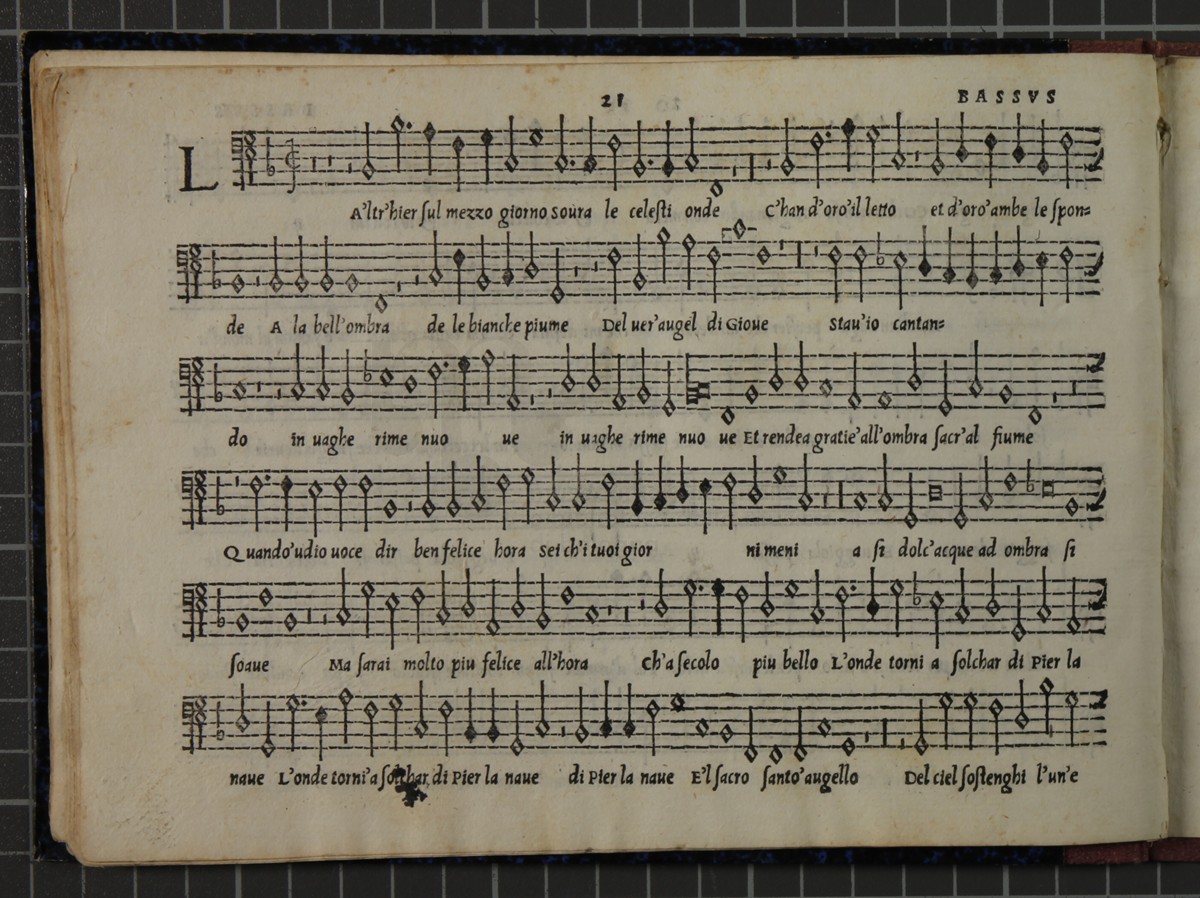 21 BASSVS
LA'ltr'hier sul mezzo giorno soura le celesti onde C'han d'oro'il letto et d'oro'ambe le spon=
de A la bell'ombra de le bianche piume Del uer'augel di Gioue Stau'io cantan=
do in uaghe rime nuo ue in uaghe rime nuo ue Et rendea gratie'all'ombra sacr'al fiume
Quando'udio uoce dir ben felice hora sei ch'i tuoi gior ni meni a si dolc'acque ad ombra si
soaue Ma sarai molto piu felice all'hora Ch'a secolo piu bello L'onde torni a solchar di Pier la
naue L'onde torni'a solchar di Pier la naue di Pier la naue E'l sacro santo'augello Del ciel sostenghi l'un'e